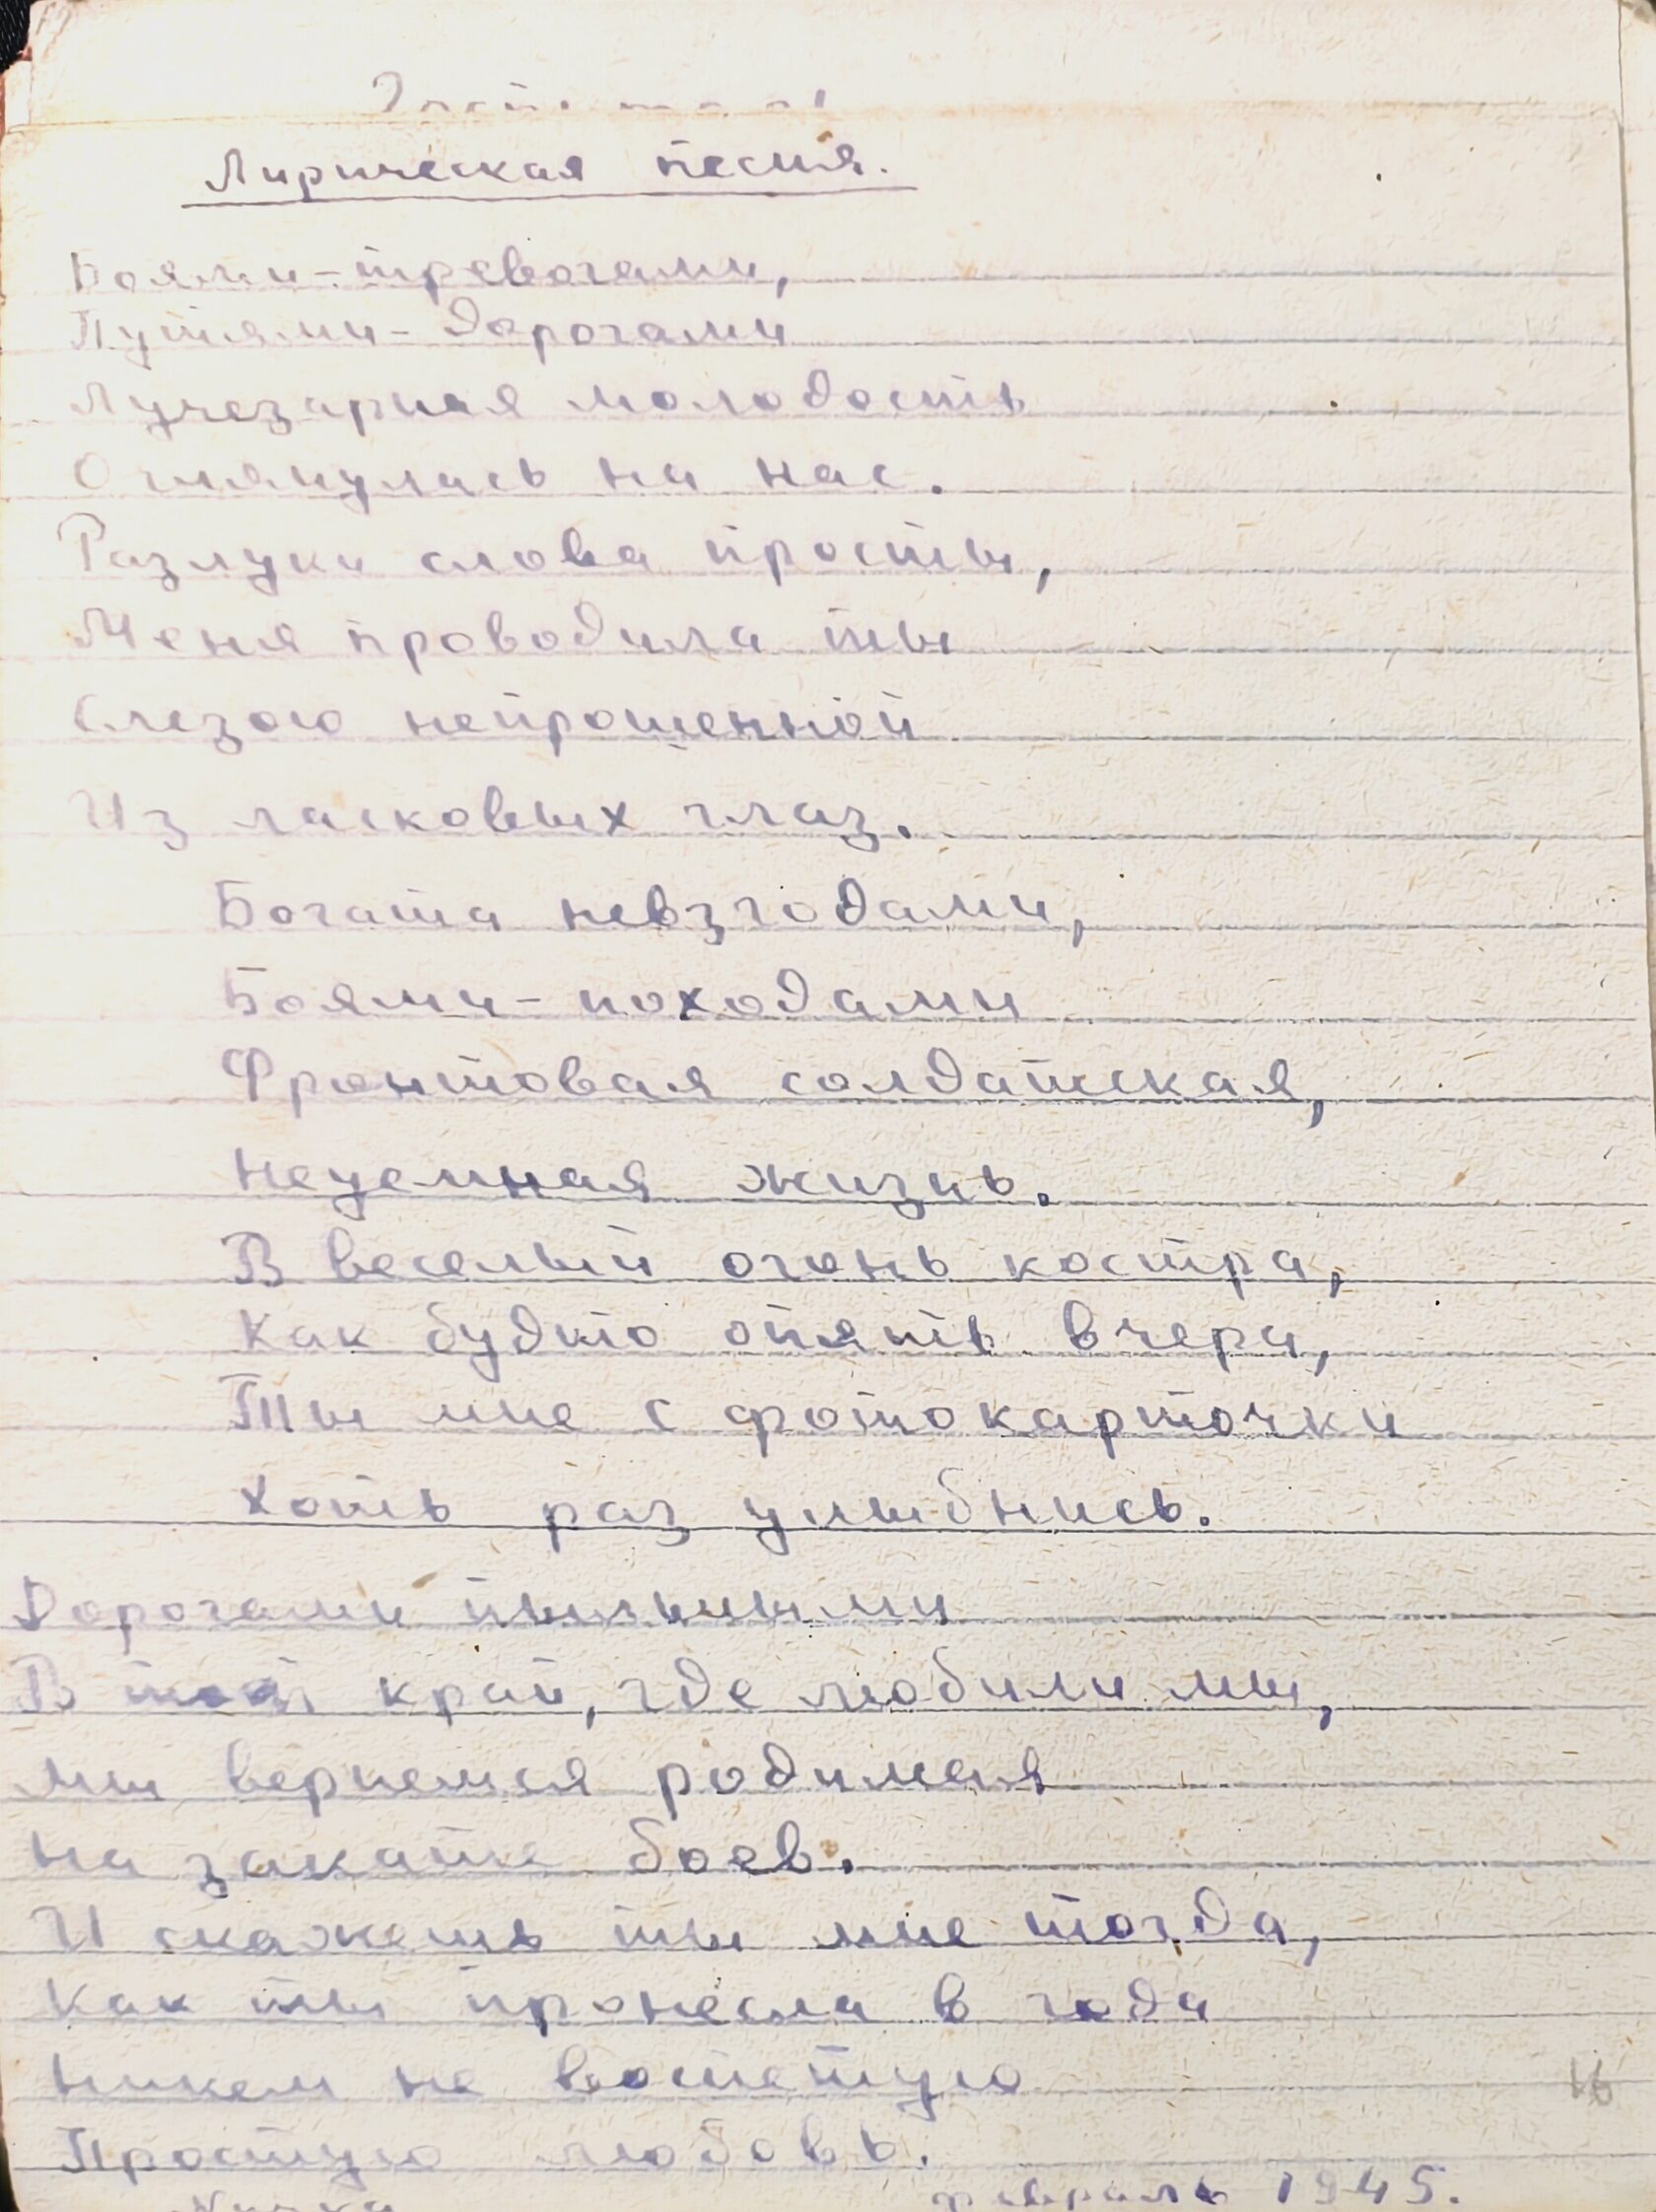 Лирическая песня.
Боями-тревогами,
Путями-дорогами
Лучезарная молодость
Оглянулась на нас.
Разлуки слова просты,
Меня проводила ты
Слезою непрошенной
Из ласковых глаз.
Богата невзгодами,
Боями-походами
Фронтовая солдатская,
неуемная жизнь.
В веселый огонь костра,
Как будто опять вчера,
Ты мне с фотокарточки
Хоть раз улыбнись.
Дорогами пыльными
В тот край, где любили мы,
мы вернемся родимая
на закате боев.
И скажешь ты мне тогда,
Как ты пронесла в года
никем не воспетую
Простую любовь.
16
февраль 1945.